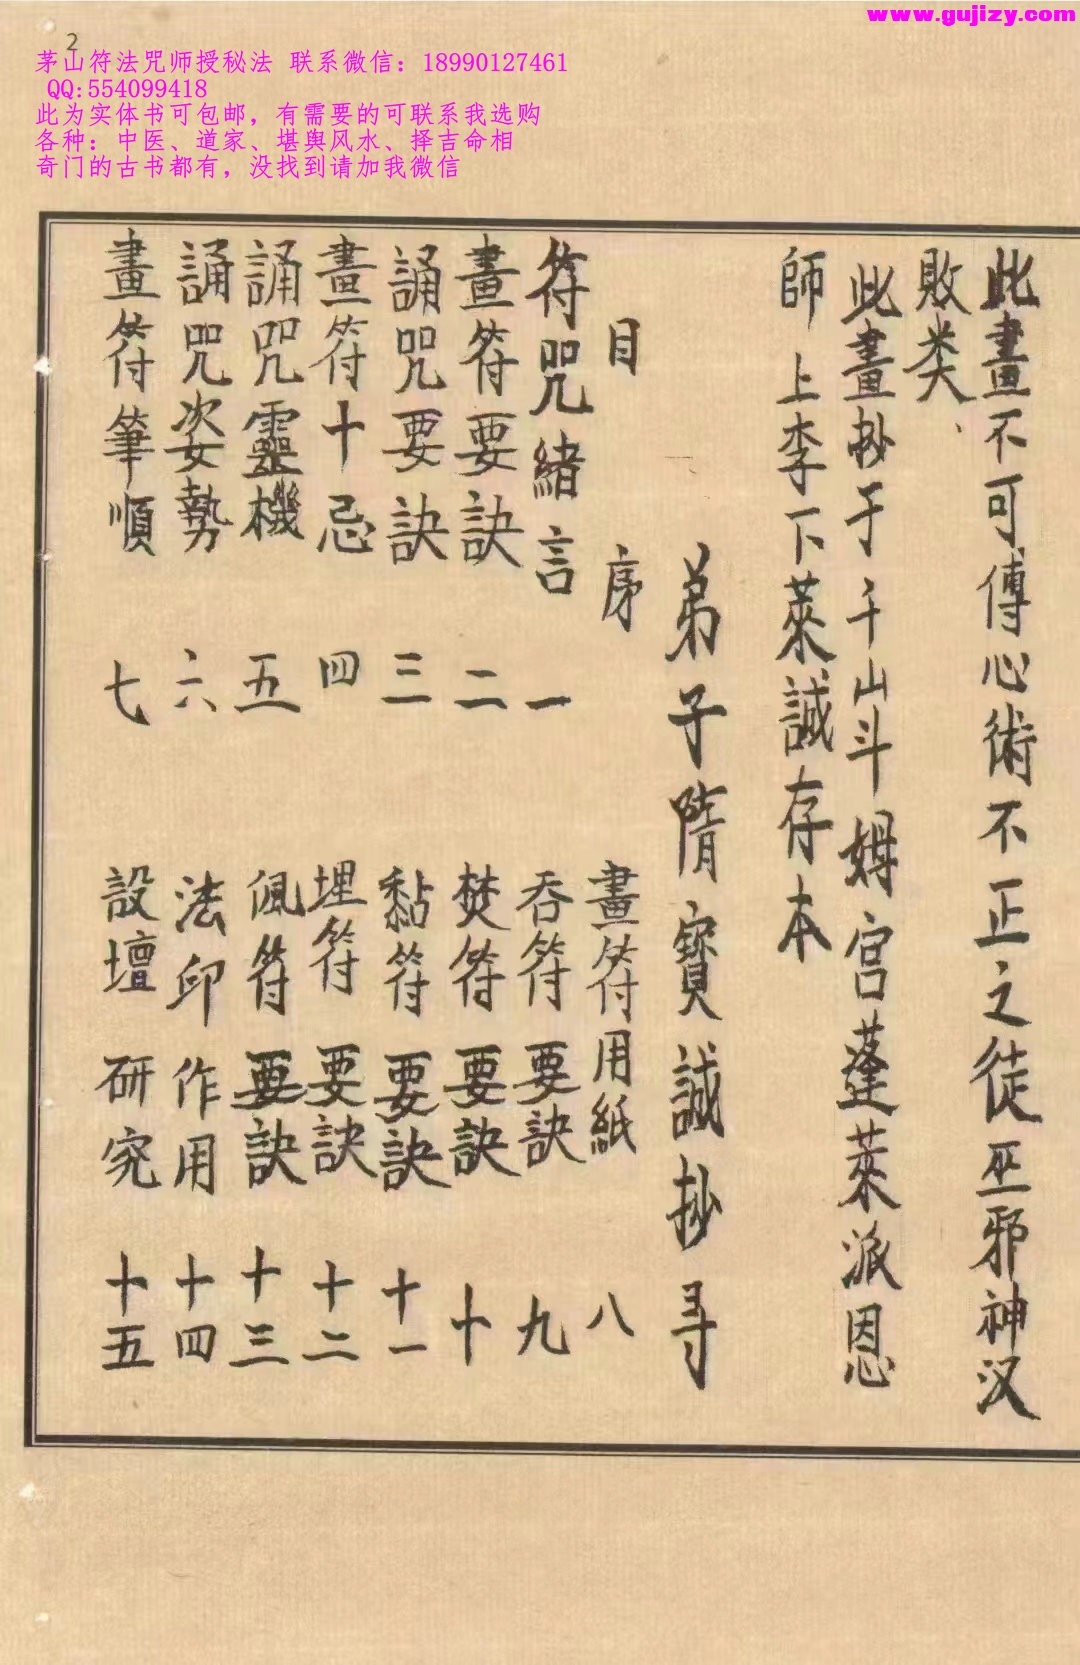 www.gujizy.com
2
茅山符法咒师授秘法 联系微信：18990127461
QQ:554099418
此为实体书可包邮，有需要的可联系我选购
各种：中医、道家、堪舆风水、择吉命相
奇门的古书都有，没找到请加我微信
此畫不可傳心術不正之徒巫邪神汉
敗类
此畫抄于千山斗姆宫蓬萊派恩
師上李下萊誠存本
弟子隋寶誠抄寻
目 序
符咒緒言 一
畫符要訣 二
誦咒要訣 三
畫符十忌 四
誦咒靈機 五
誦咒姿勢 六
畫符筆順 七
畫符用紙 八
吞符要訣 九
焚符要訣 十
黏符要訣 十一
埋符要訣 十二
佩符要訣 十三
法印作用 十四
設壇研究 十五